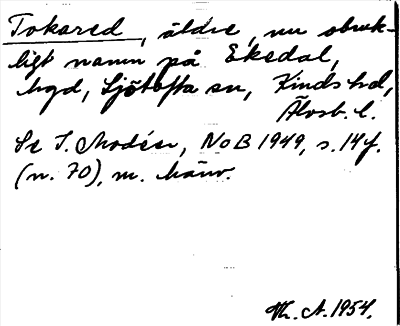 Tokared, äldre, nu obruk-
ligt namn på Ekedal,
hgd, Ljöstofta sn, Kinds hd,
Älvsb. l.
Se I. Modéer, NoB 1949, s. 14 f.
(n. 70), m. hänv.
A. 1954.